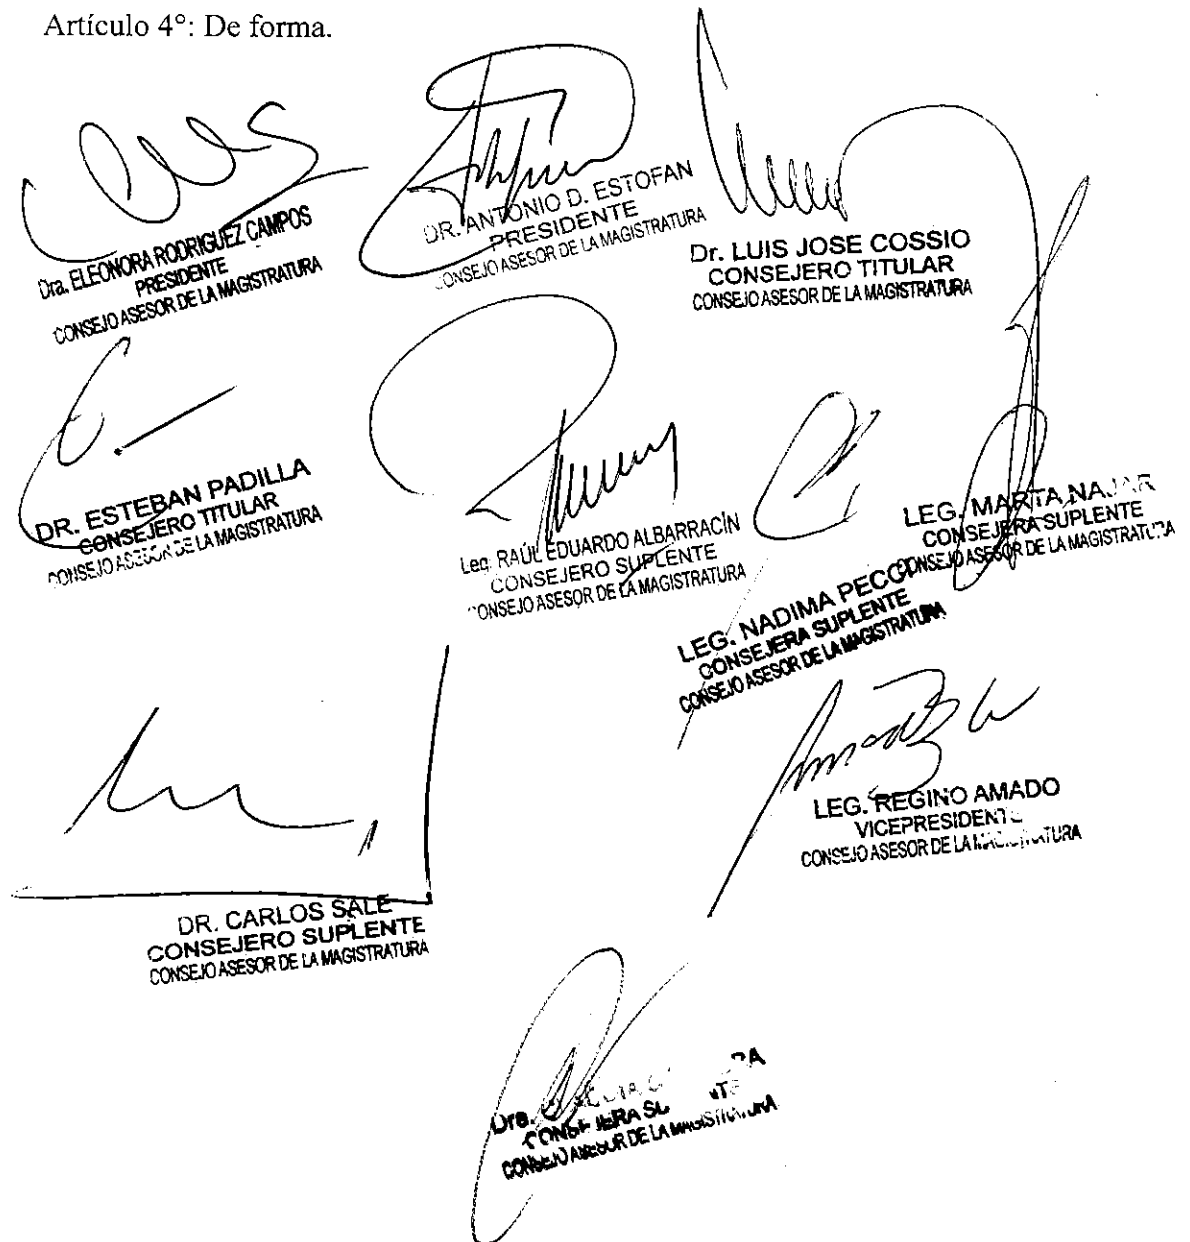 Artículo 4°: De forma.
Dra. ELEONORA RODRIGUEZ CAMPOS
PRESIDENTE
CONSEJO ASESOR DE LA MAGISTRATURA
DR. ANTONIO D. ESTOFAN
PRESIDENTE
CONSEJO ASESOR DE LA MAGISTRATURA
Dr. LUIS JOSE COSSIO
CONSEJERO TITULAR
CONSEJO ASESOR DE LA MAGISTRATURA
DR. ESTEBAN PADILLA
CONSEJERO TITULAR
CONSEJO ASESOR DE LA MAGISTRATURA
Leg. RAÚL EDUARDO ALBARRACÍN
CONSEJERO SUPLENTE
CONSEJO ASESOR DE LA MAGISTRATURA
LEG. MARTA NAJAR
CONSEJERA SUPLENTE
CONSEJO ASESOR DE LA MAGISTRATURA
LEG. NADIMA PECCI
CONSEJERA SUPLENTE
CONSEJO ASESOR DE LA MAGISTRATURA
LEG. REGINO AMADO
VICEPRESIDENTE
CONSEJO ASESOR DE LA MAGISTRATURA
DR. CARLOS SALE
CONSEJERO SUPLENTE
CONSEJO ASESOR DE LA MAGISTRATURA
Dra.
CONSEJERA SUPLENTE
CONSEJO ASESOR DE LA MAGISTRATURA